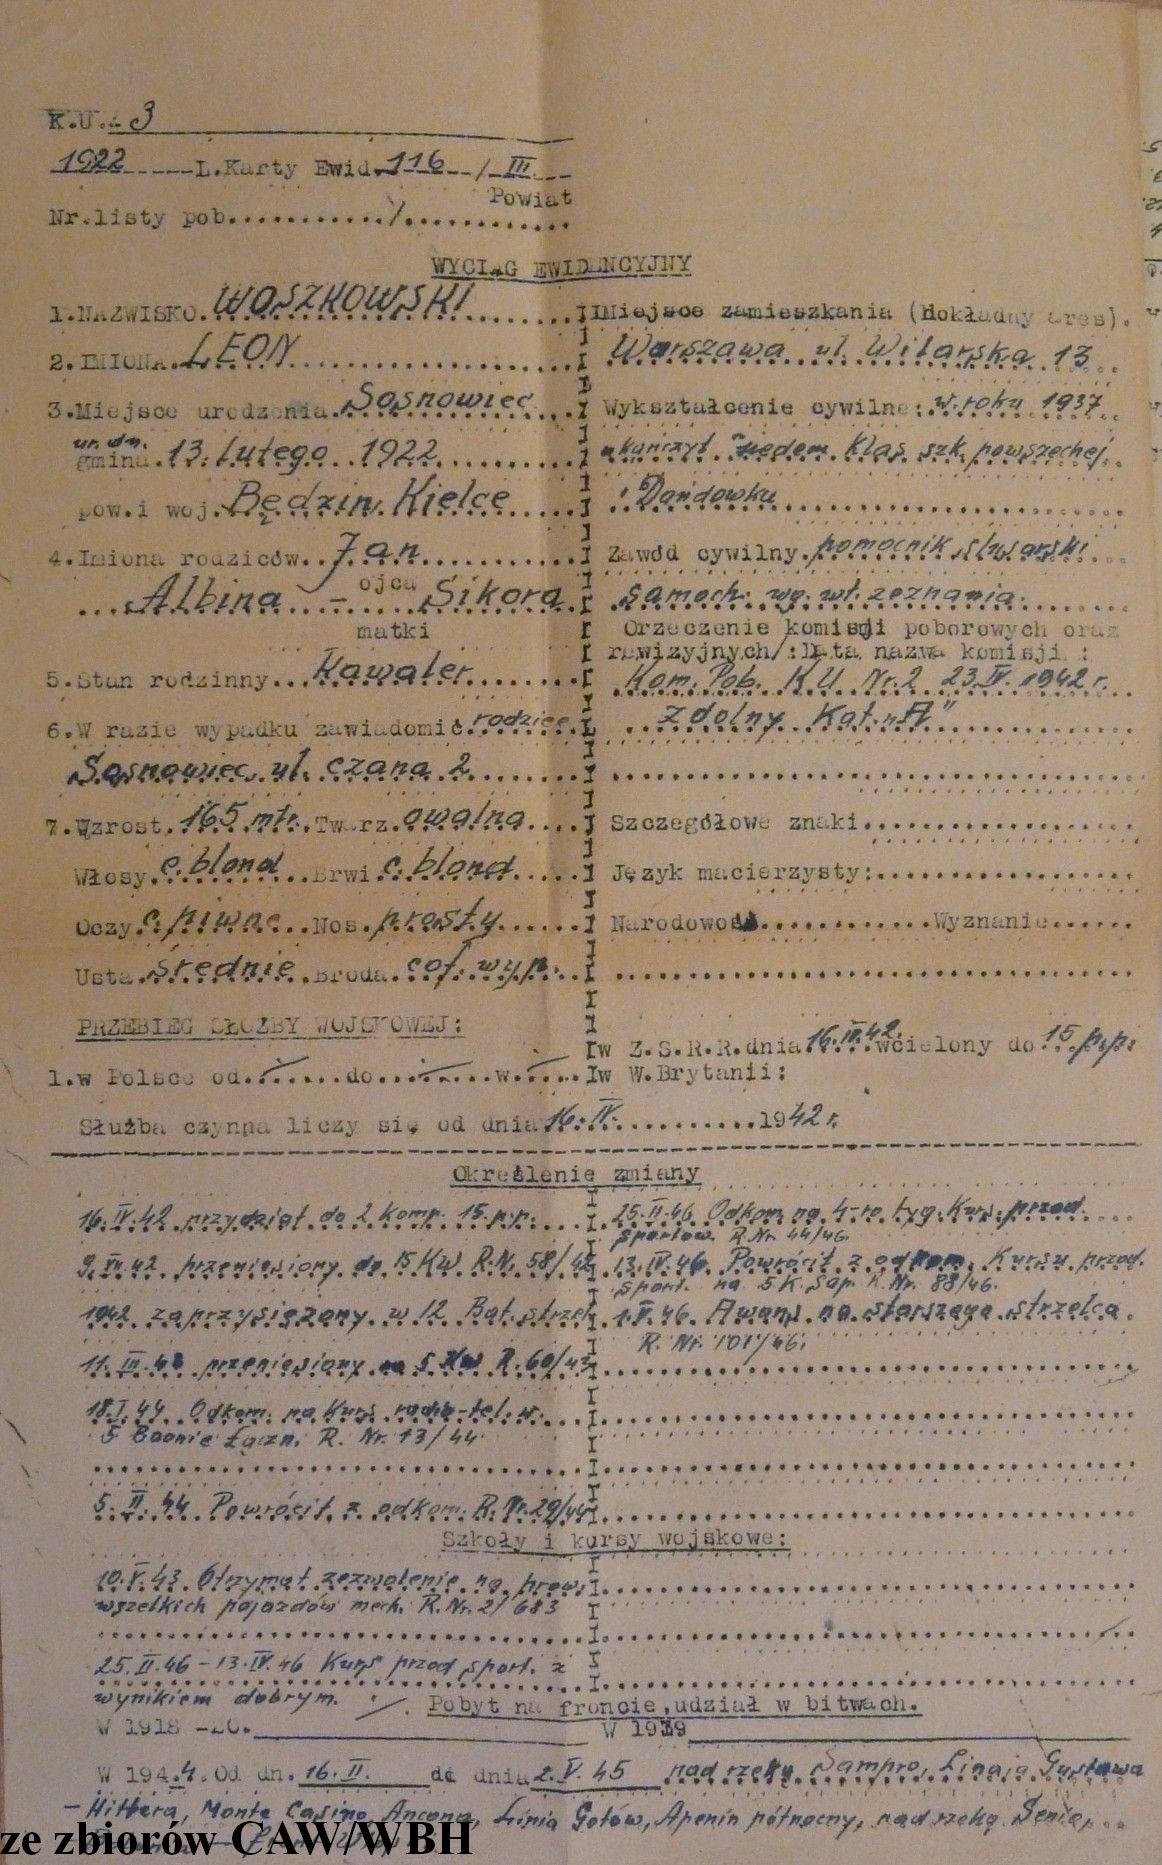 K.U. 3
1922 L.Karty Ewid. 116 / III
Powiat
Nr.listy pob. /
WYCIĄG EWIDENCYJNY
1.NAZWISKO. WOSZKOWSKI
2.IMIONA. LEON
3.Miejsce urodzenia. Sosnowiec
ur. dn.
gmina. 13. Lutego 1922
pow.i woj. Będzin, Kielce
4.Imiona rodziców. Jan
ojca
Albina – Sikora
matki
5.Stan rodzinny. Kawaler
6.W razie wypadku zawiadomić. rodzice
Sosnowiec ul. czana 2
7.Wzrost. 165 mtr. Twarz. owalna
Włosy. c. blond Brwi. c. blond
Oczy. c. piwne Nos. prosty
Usta. średnie Broda. cof. wyp.
Miejsce zamieszkania (Dokładny ares).
Warszawa ul. Witarska 13
Wykształcenie cywilne: w roku 1937
ukończył siedem klas szk. powszechej
Dańdówku
Zawód cywilny. pomocnik ślusarski
samoch. wg. wł. zeznania.
Orzeczenie komisji poborowych oraz
rewizyjnych/:Data nazwa komisji :
Kom. Pob. K.U. Nr. 2 23.IV.1942 r.
zdolny Kat. "A"
Szczegółowe znaki
Język macierzysty:
Narodowość Wyznanie
PRZEBIEG SŁUŻBY WOJSKOWEJ:
1.w Polsce od do w
w Z.S.R.R.dnia 16.IV.42. wcielony do 15 p.p.
w W.Brytanii:
Służba czynna liczy się od dnia 16.IV. 1942 r.
Określenie zmiany
16.IV.42 przydział do 2 komp. 15.p.p.
9.XII.42 przeniesiony do 15 Kw R.N. 58/42
1942 zaprzysiężony w 12 Bat. strzel.
11.III.43 przeniesiony 5 Kw R.60/43
18.I.44 Odkom. na Kurs radio-tel. w
5 Baonie Łączn. R. Nr. 13/44
5.II.44 Powrócił z odkom. R. Nr. 29/44
25.II.46 Odkom. na 4-ro tyg. Kurs przod.
sportow. R Nr 44/46.
13.IV.46 Powrócił z odkom. Kursu przod.
sport. na 5 K. Sap. R. Nr. 88/46.
1.V.46 Awans na starszego strzelca.
R. Nr. 101/46.
Szkoły i kursy wojskowe:
10.V.43 Otrzymał zezwolenie na prow.
wszelkich pojazdów mech. R.Nr. 2/683
25.II.46 – 13.IV.46 Kurs przod. sport. z
wynikiem dobrym.
Pobyt na froncie,udział w bitwach.
W 1918 -20. W 1939
W 1944. Od dn. 16.II. do dnia 2.V.45 nad rzeką Sampro, Linaja Gustawa
– Hitlera, Monte Casino, Ancona, Linia Gotów, Apenin północny, nad rzeką Senio,
ze zbiorów CAW/WBH